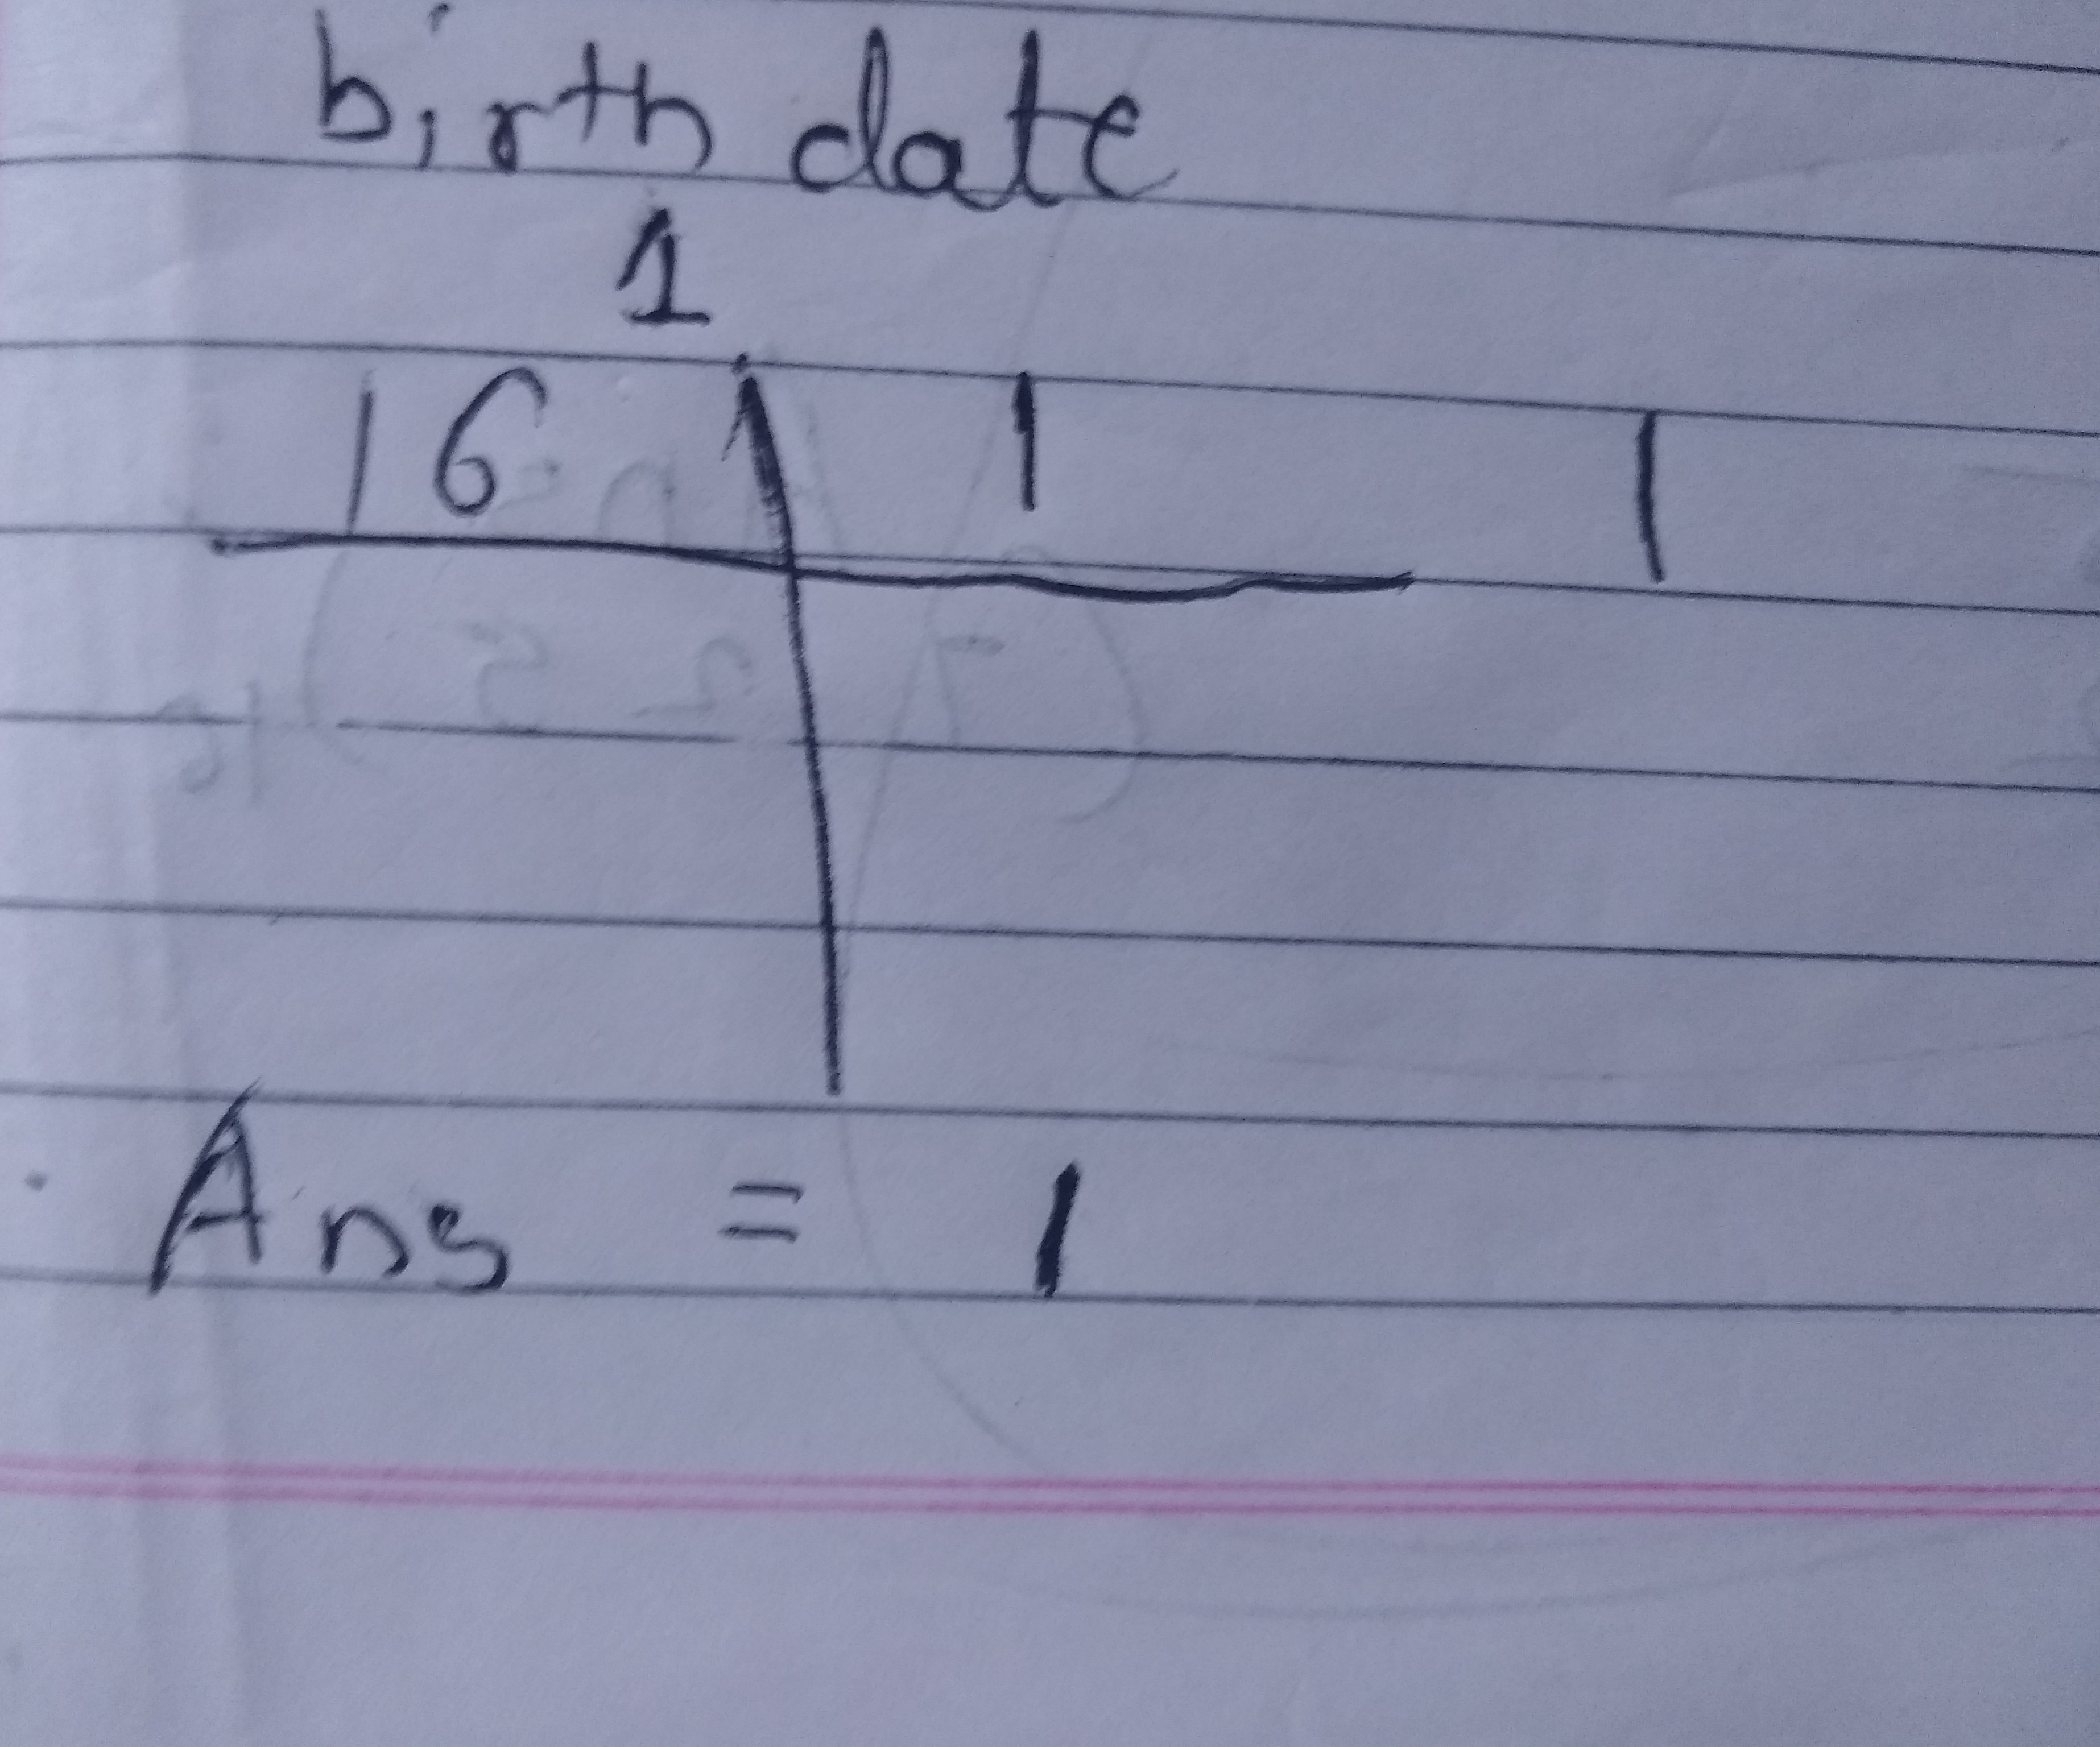 birth date
1
16 1 1
Ans = 1